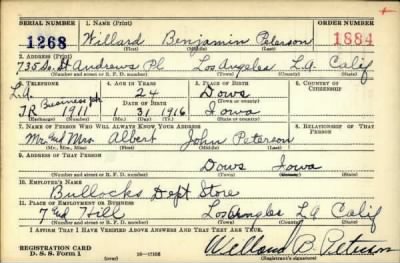 SERIAL NUMBER 1. NAME (Print) ORDER NUMBER
1268 Willard Benjamin Peterson 1884
(First) (Middle) (Last)
2. ADDRESS (Print)
735 So. St Andrews Pl Los Angeles L.A. Calif
(Number and street or R. F. D. number) (Town) (County) (State)
3. TELEPHONE 4. AGE IN YEARS 5. PLACE OF BIRTH 6. COUNTRY OF CITIZENSHIP
L.A. Business ph 24 Dows
DATE OF BIRTH (Town or county)
TR 1911 31 1916 Iowa
(Exchange) (Number) (Mo.) (Day) (Yr.) (State or country)
7. NAME OF PERSON WHO WILL ALWAYS KNOW YOUR ADDRESS 8. RELATIONSHIP OF THAT PERSON
Mr and Mrs Albert John Peterson
(Mr., Mrs., Miss) (First) (Middle) (Last)
9. ADDRESS OF THAT PERSON
Dows Iowa
(Number and street or R. F. D. number) (Town) (County) (State)
10. EMPLOYER'S NAME
Bullocks Dept Store
11. PLACE OF EMPLOYMENT OR BUSINESS
7 and Hill Los Angles L.A. Calif
(Number and street or R. F. D. number) (Town) (County) (State)
I AFFIRM THAT I HAVE VERIFIED ABOVE ANSWERS AND THAT THEY ARE TRUE.
REGISTRATION CARD
D. S. S. Form 1 (over) 16—17105 Willard B. Peterson
(Registrant's signature)